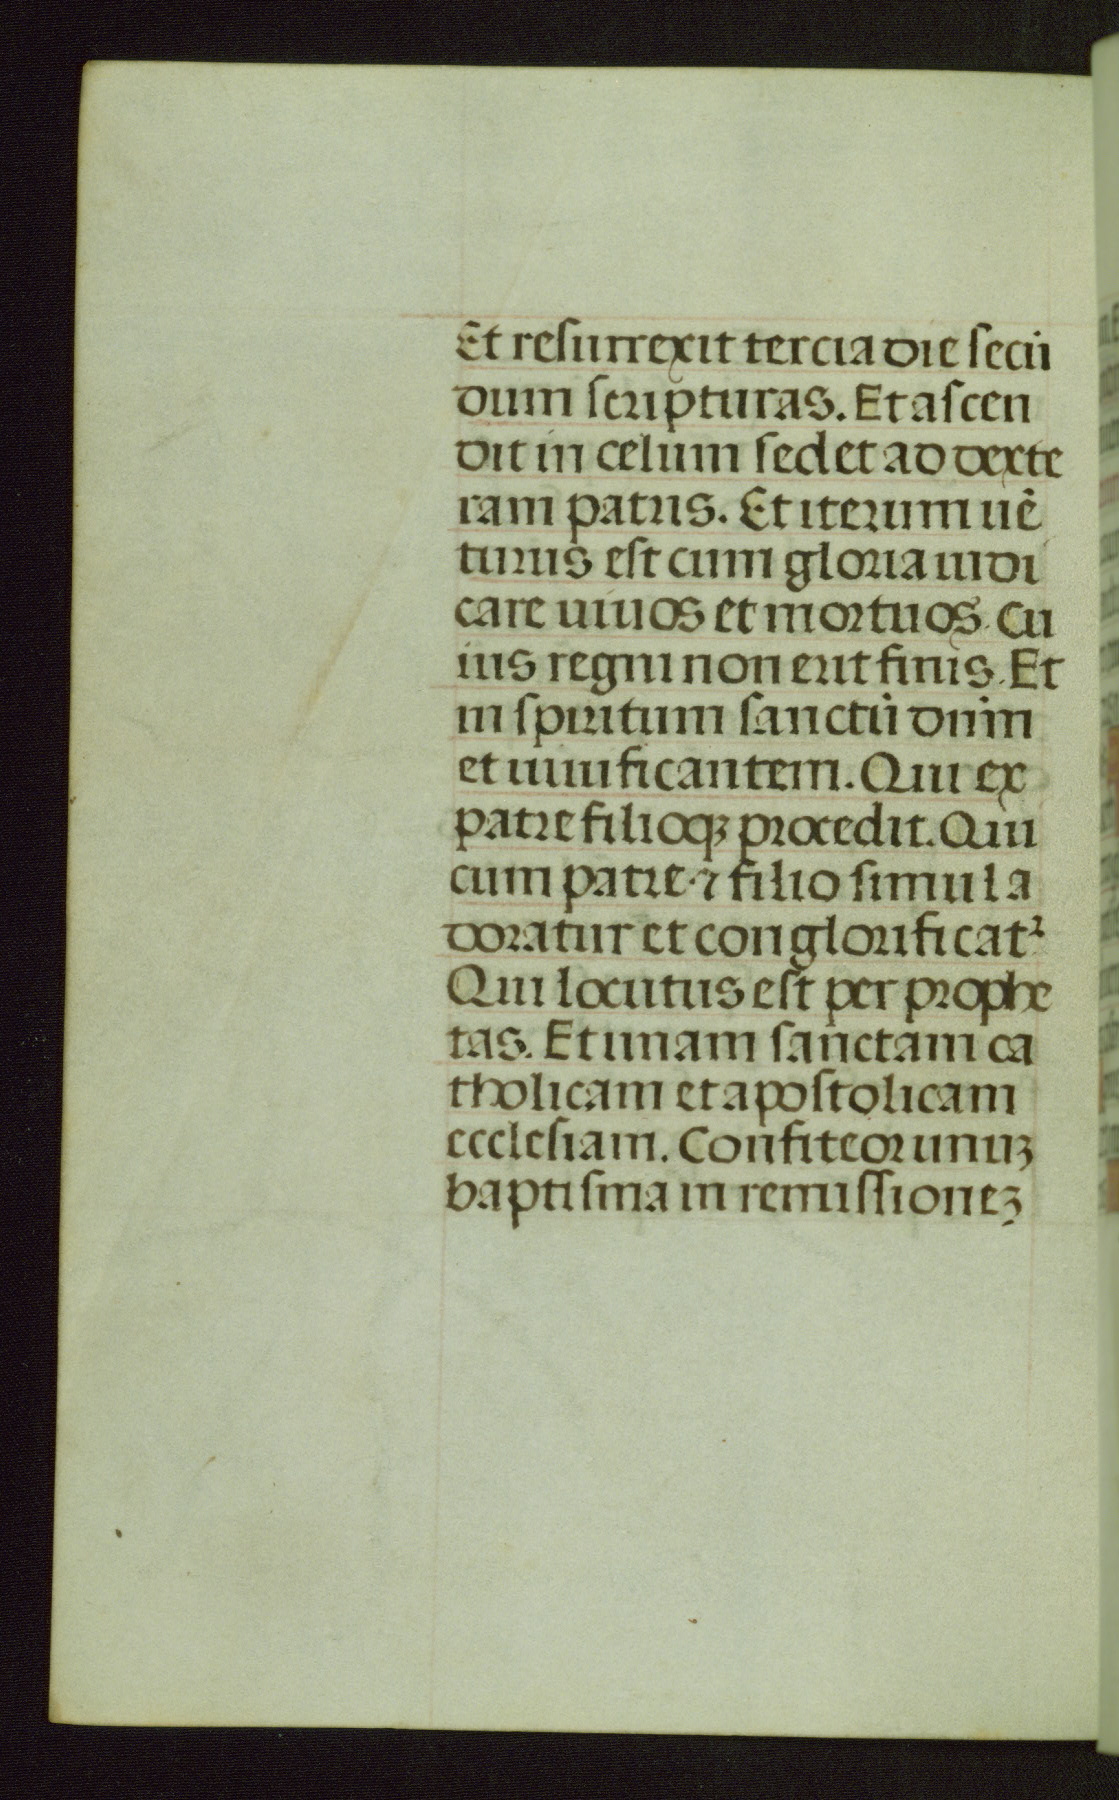 Et resurrexit tercia die secū
dum scripturas. Et ascen
dit in celum sedet ad dexte
ram patris. Et iterum uē
turus est cum gloria iudi
care uiuos et mortuos. Cu
ius regni non erit finis. Et
in spiritum sanctū dn̄m
et uiuificantem. Qui ex
patre filioqꝫ procedit. Qui
cum patre ⁊ filio simul a
doratur et conglorificatᷣ
Qui locutus est per prophe
tas. Et unam sanctam ca
tholicam et apostolicam
ecclesiam. Confiteor unuꝫ
baptisma in remissioneꝫ